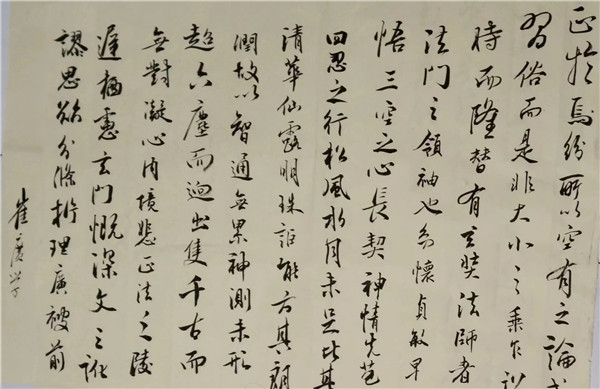 正於焉紛所以空有之論
習俗而是非大小之乘乍
時而隆替有玄奘法師者
法門之領袖也幼懷貞敏早
悟三空之心長契神情先苞
四忍之行松風水月未足比其
清華仙露明珠詎能方其朗
潤故以智通無累神測未形
超六塵而迥出隻千古而
無對凝心內境悲正法之陵
遲栖慮玄門慨深文之訛
謬思欲分條析理廣被前
崔